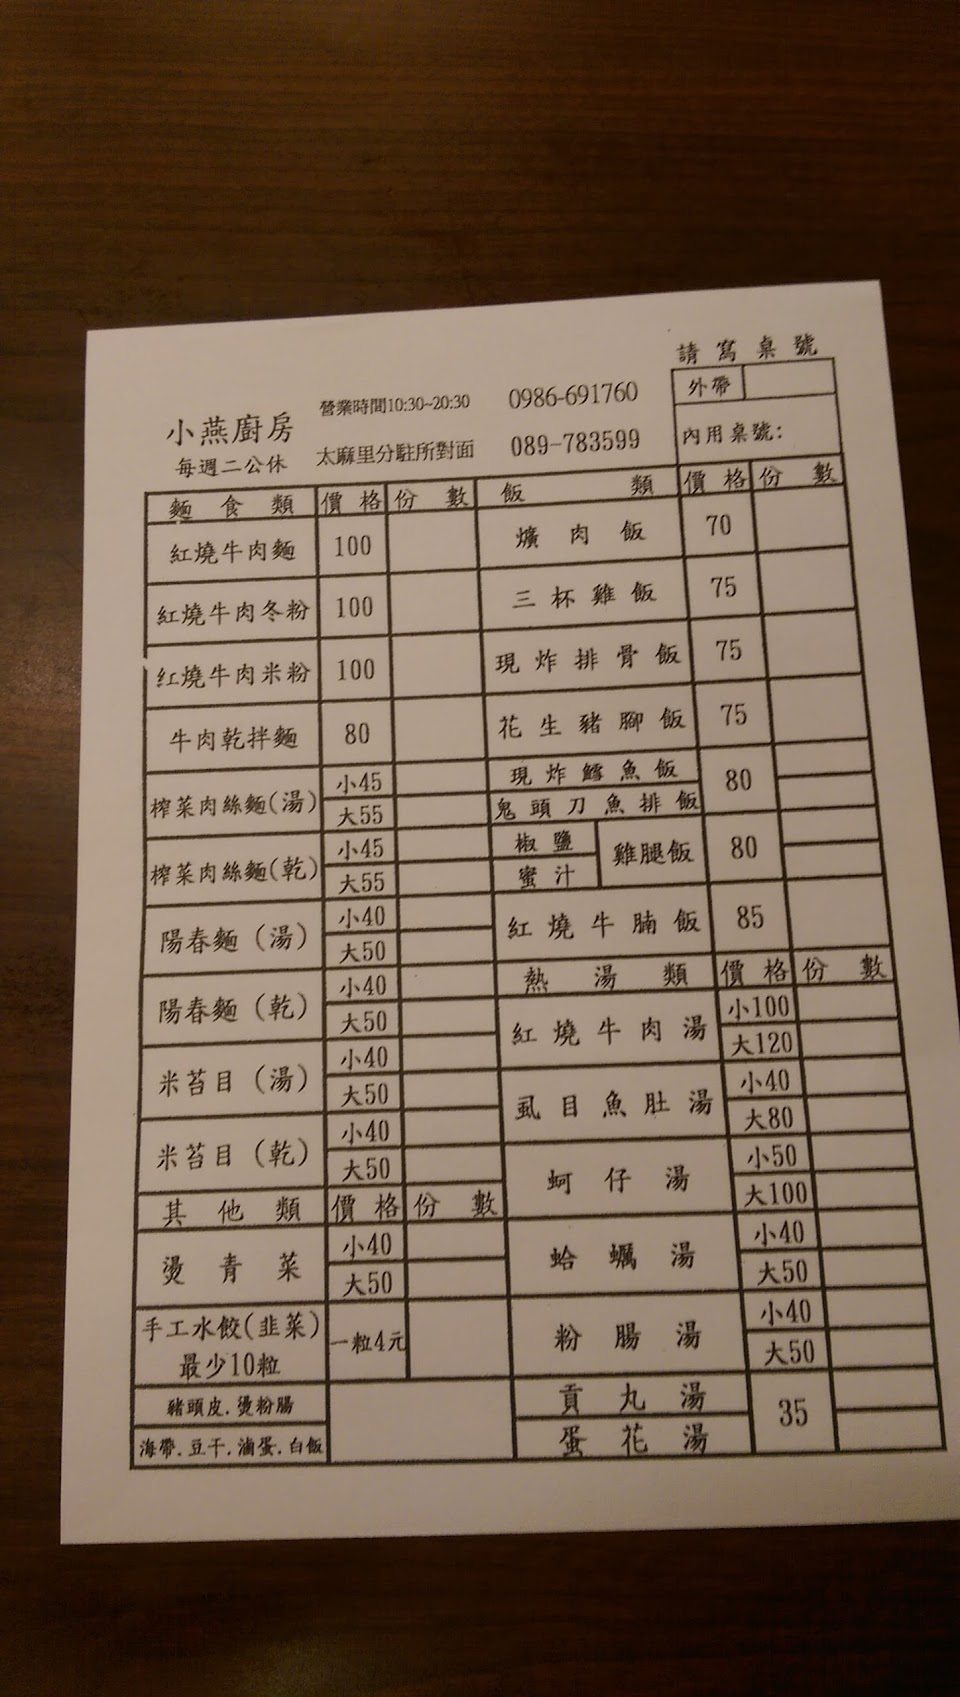 請寫桌號
外帶
內用桌號:
小燕廚房
每週二公休
營業時間10:30~20:30
太麻里分駐所對面
0986-691760
089-783599
麵食類 價格 份數
紅燒牛肉麵 100
紅燒牛肉冬粉 100
紅燒牛肉米粉 100
牛肉乾拌麵 80
榨菜肉絲麵(湯) 小45
大55
榨菜肉絲麵(乾) 小45
大55
陽春麵(湯) 小40
大50
陽春麵(乾) 小40
大50
米苔目(湯) 小40
大50
米苔目(乾) 小40
大50
其他類 價格 份數
燙青菜 小40
大50
手工水餃(韭菜)
最少10粒
一粒4元
豬頭皮.燙粉腸
海帶.豆干.滷蛋.白飯
飯類 價格 份數
爌肉飯 70
三杯雞飯 75
現炸排骨飯 75
花生豬腳飯 75
現炸鱈魚飯
鬼頭刀魚排飯
80
椒鹽
蜜汁
雞腿飯 80
紅燒牛腩飯 85
熱湯類 價格 份數
紅燒牛肉湯 小100
大120
虱目魚肚湯 小40
大80
蚵仔湯 小50
大100
蛤蠣湯 小40
大50
粉腸湯 小40
大50
貢丸湯
蛋花湯
35